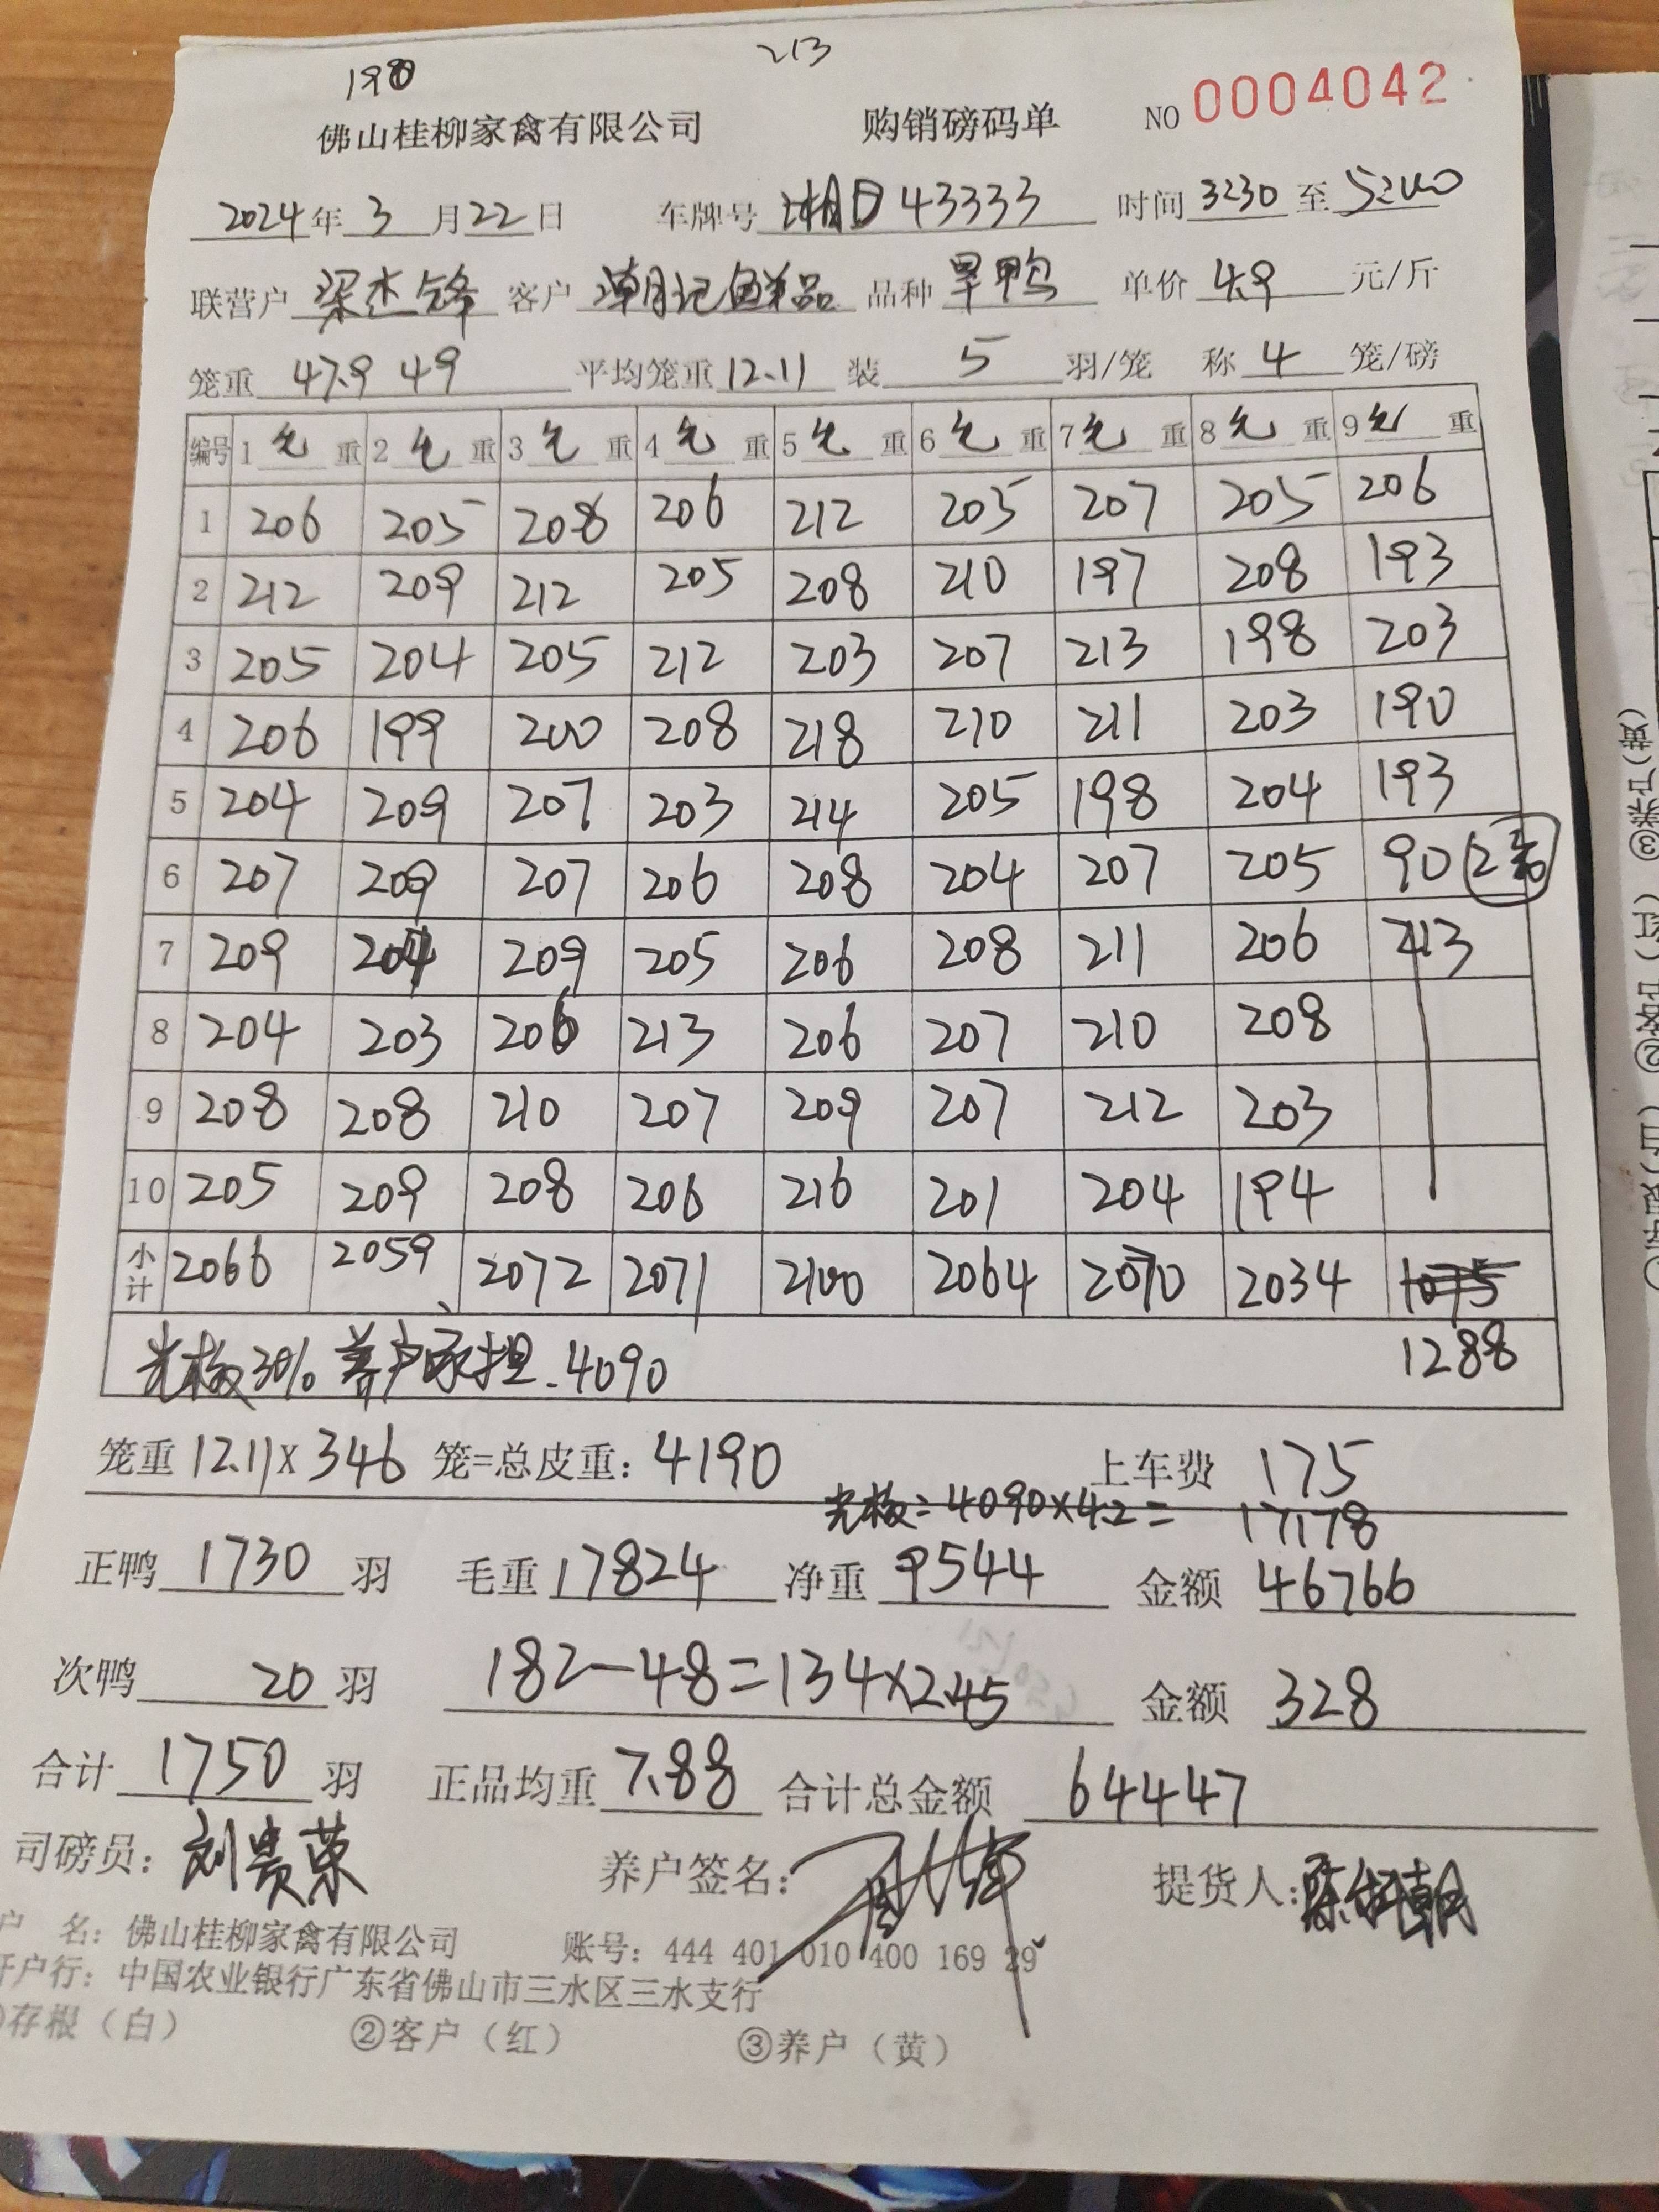 190 213
佛山桂柳家禽有限公司 购销磅码单 NO 0004042
2024年3月22日 车牌号 湘D43333 时间 3230 至 5200
联营户 梁杰锋 客户 潮记鲜品 品种 旱鸭 单价 4.9 元/斤
笼重 47.9 49 平均笼重 12.11 装 5 羽/笼 称 4 笼/磅
编号 1 毛 重 2 毛 重 3 毛 重 4 毛 重 5 毛 重 6 毛 重 7 毛 重 8 毛 重 9 毛 重
1 206 205 208 206 212 205 207 205 206
2 212 209 212 205 208 210 197 208 193
3 205 204 205 212 203 207 213 198 203
4 206 199 200 208 218 210 211 203 190
5 204 209 207 203 214 205 198 204 193
6 207 209 207 206 208 204 207 205 90 2笼
7 209 204 209 205 206 208 211 206 213
8 204 203 206 213 206 207 210 208
9 208 208 210 207 209 207 212 203
10 205 209 208 206 216 201 204 194
小计 2066 2059 2072 2071 2100 2064 2070 2034 1075
光板30% 养户承担.4090 1288
笼重 12.11 x 346 笼=总皮重: 4190 上车费 175
光板=4090x4.2= 17178
正鸭 1730 羽 毛重 17824 净重 9544 金额 46766
次鸭 20 羽 182-48=134x2.45 金额 328
合计 1750 羽 正品均重 7.88 合计总金额 64447
司磅员: 刘贵荣 养户签名: 提货人:
户 名: 佛山桂柳家禽有限公司 账号: 444 401 010 400 169 29
开户行: 中国农业银行广东省佛山市三水区三水支行
存根（白） ②客户（红） ③养户（黄）